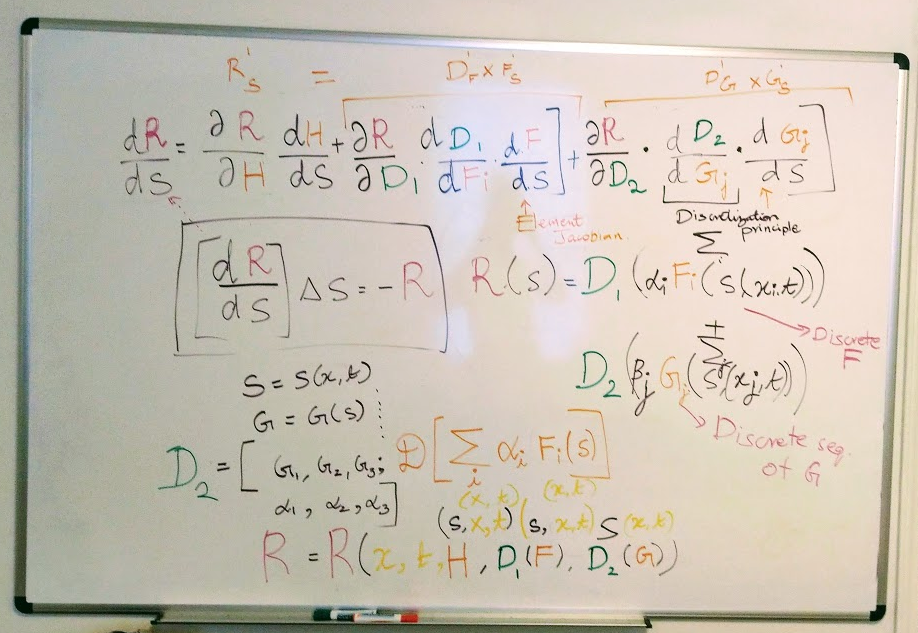 R'_S = D'_F × F'_S D'_G × G'_S
dR/dS = ∂R/∂H dH/dS + ∂R/∂D₁ · dD₁/dFᵢ · dF/dS ] + ∂R/∂D₂ · dD₂/dGⱼ · dGⱼ/dS ]
Element Jacobian
Discretization principle
[dR/dS] ΔS = -R
R(s) = D₁(Σᵢ αᵢ Fᵢ(S(xᵢ,t)))
Discrete F
+
D₂(βⱼ Gⱼ(Σⱼ S(xⱼ,t)))
Discrete seq. of G
S = S(x,t)
G = G(s)
D₂ = [G₁, G₂, G₃; α₁, α₂, α₃]
D[Σᵢ αᵢ Fᵢ(s)]
(x,t) (x,t)
(s,x,t) (s,x,t) S(x,t)
R = R(x, t, H, D₁(F), D₂(G))